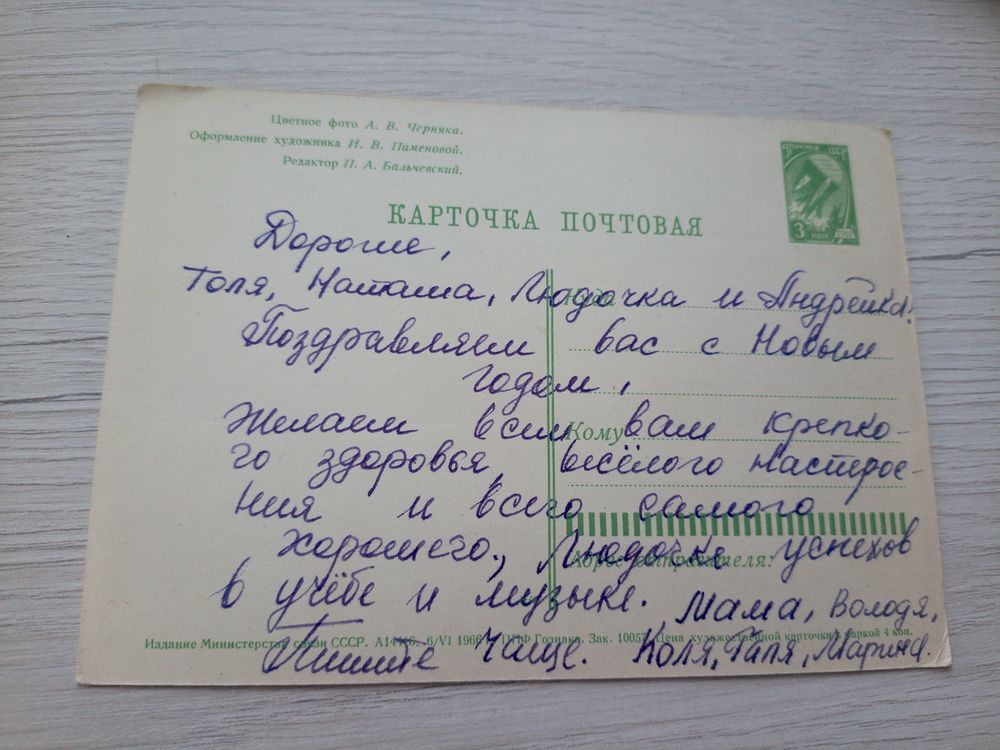 Цветное фото А. В. Черняка.
Оформление художника И. В. Пименовой.
Редактор П. А. Бальчевский.
ПОЧТА СССР
3 коп
КАРТОЧКА ПОЧТОВАЯ
Дорогие,
Толя, Наташа, Людочка и Андрейка!
Куда
Поздравляем вас с Новым
годом,
Желаем всем вам крепко-
Кому
го здоровья, весёлого настрое-
ния и всего самого
хорошего., Людочке успехов
Адрес отправителя:
в учёбе и музыке. Мама, Володя,
Издание Министерства связи СССР. 6/VI 1966 ППФ Гознака. Зак. 10057. Цена художественной карточки с маркой 4 коп.
Пишите чаще. Коля, Галя, Марина.